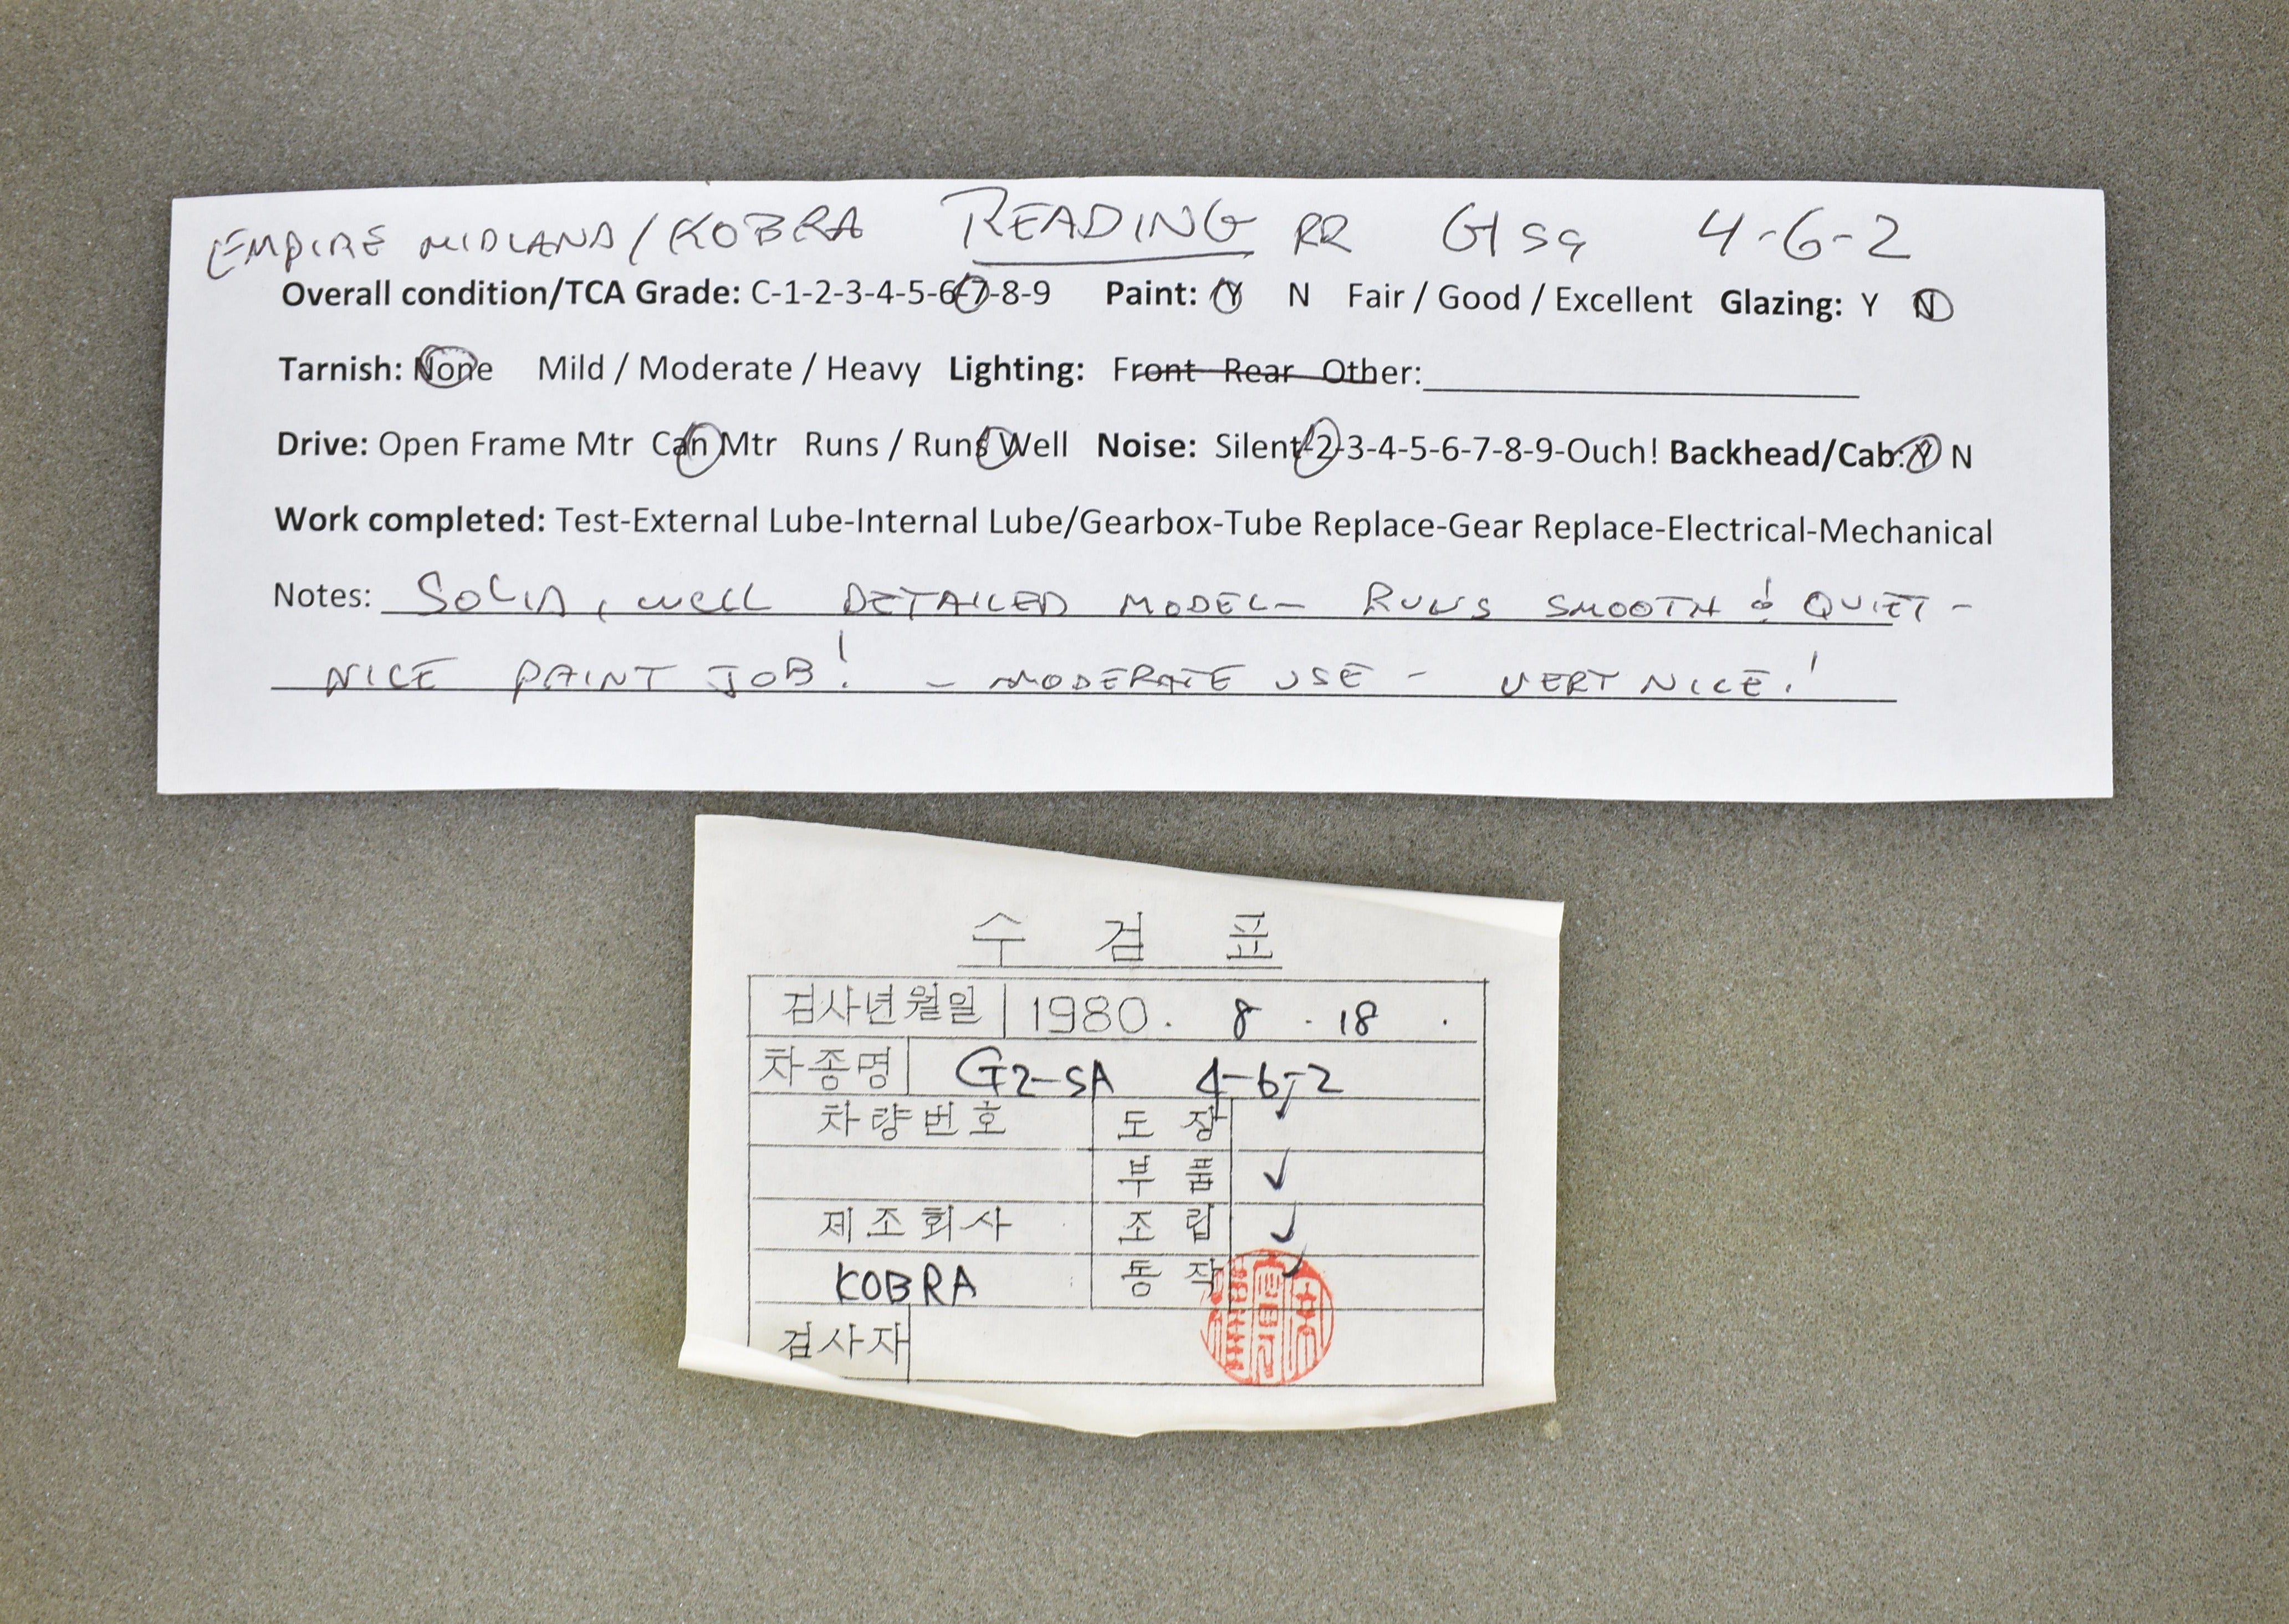 EMPIRE MIDLAND/KOBRA READING RR G1sa 4-6-2
Overall condition/TCA Grade: C-1-2-3-4-5-6-7-8-9 Paint: Y N Fair / Good / Excellent Glazing: Y N
Tarnish: None Mild / Moderate / Heavy Lighting: Front Rear Other:
Drive: Open Frame Mtr Can Mtr Runs / Runs Well Noise: Silent-2-3-4-5-6-7-8-9-Ouch! Backhead/Cab: Y N
Work completed: Test-External Lube-Internal Lube/Gearbox-Tube Replace-Gear Replace-Electrical-Mechanical
Notes: SOLID, WELL DETAILED MODEL - RUNS SMOOTH & QUIET -
NICE PAINT JOB! - MODERATE USE - VERY NICE!
수 검 표
검사년월일 1980. 8 . 18 .
차종명 G2-SA 4-6-2
차량번호 도 장 ✓
부 품 ✓
제조회사 조 립 ✓
KOBRA 동 작 ✓
검사자